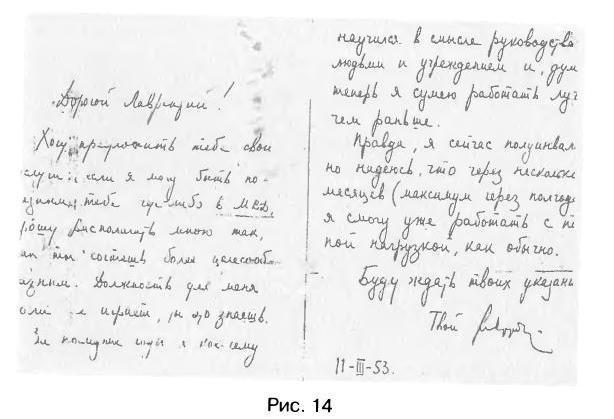 Дорогой Лаврентий!
Хочу предложить тебе свои
слуги: если я могу быть по-
езным тебе где-либо в МВД,
рошу располагать мною так,
ак ты сочтешь более целесооб-
азным. Должность для меня
оли не играет, ты это знаешь.
За я кое-чему
научился в смысле руководства
людьми и учреждением и, дум
теперь я сумею работать луч
чем раньше.
Правда, я сейчас полуинвал
но надеюсь, что через нескольк
месяцев (максимум через полгода
я смогу уже работать с п
ной нагрузкой, как обычно.
Буду ждать твоих указани
Твой
11-III-53.
Рис. 14